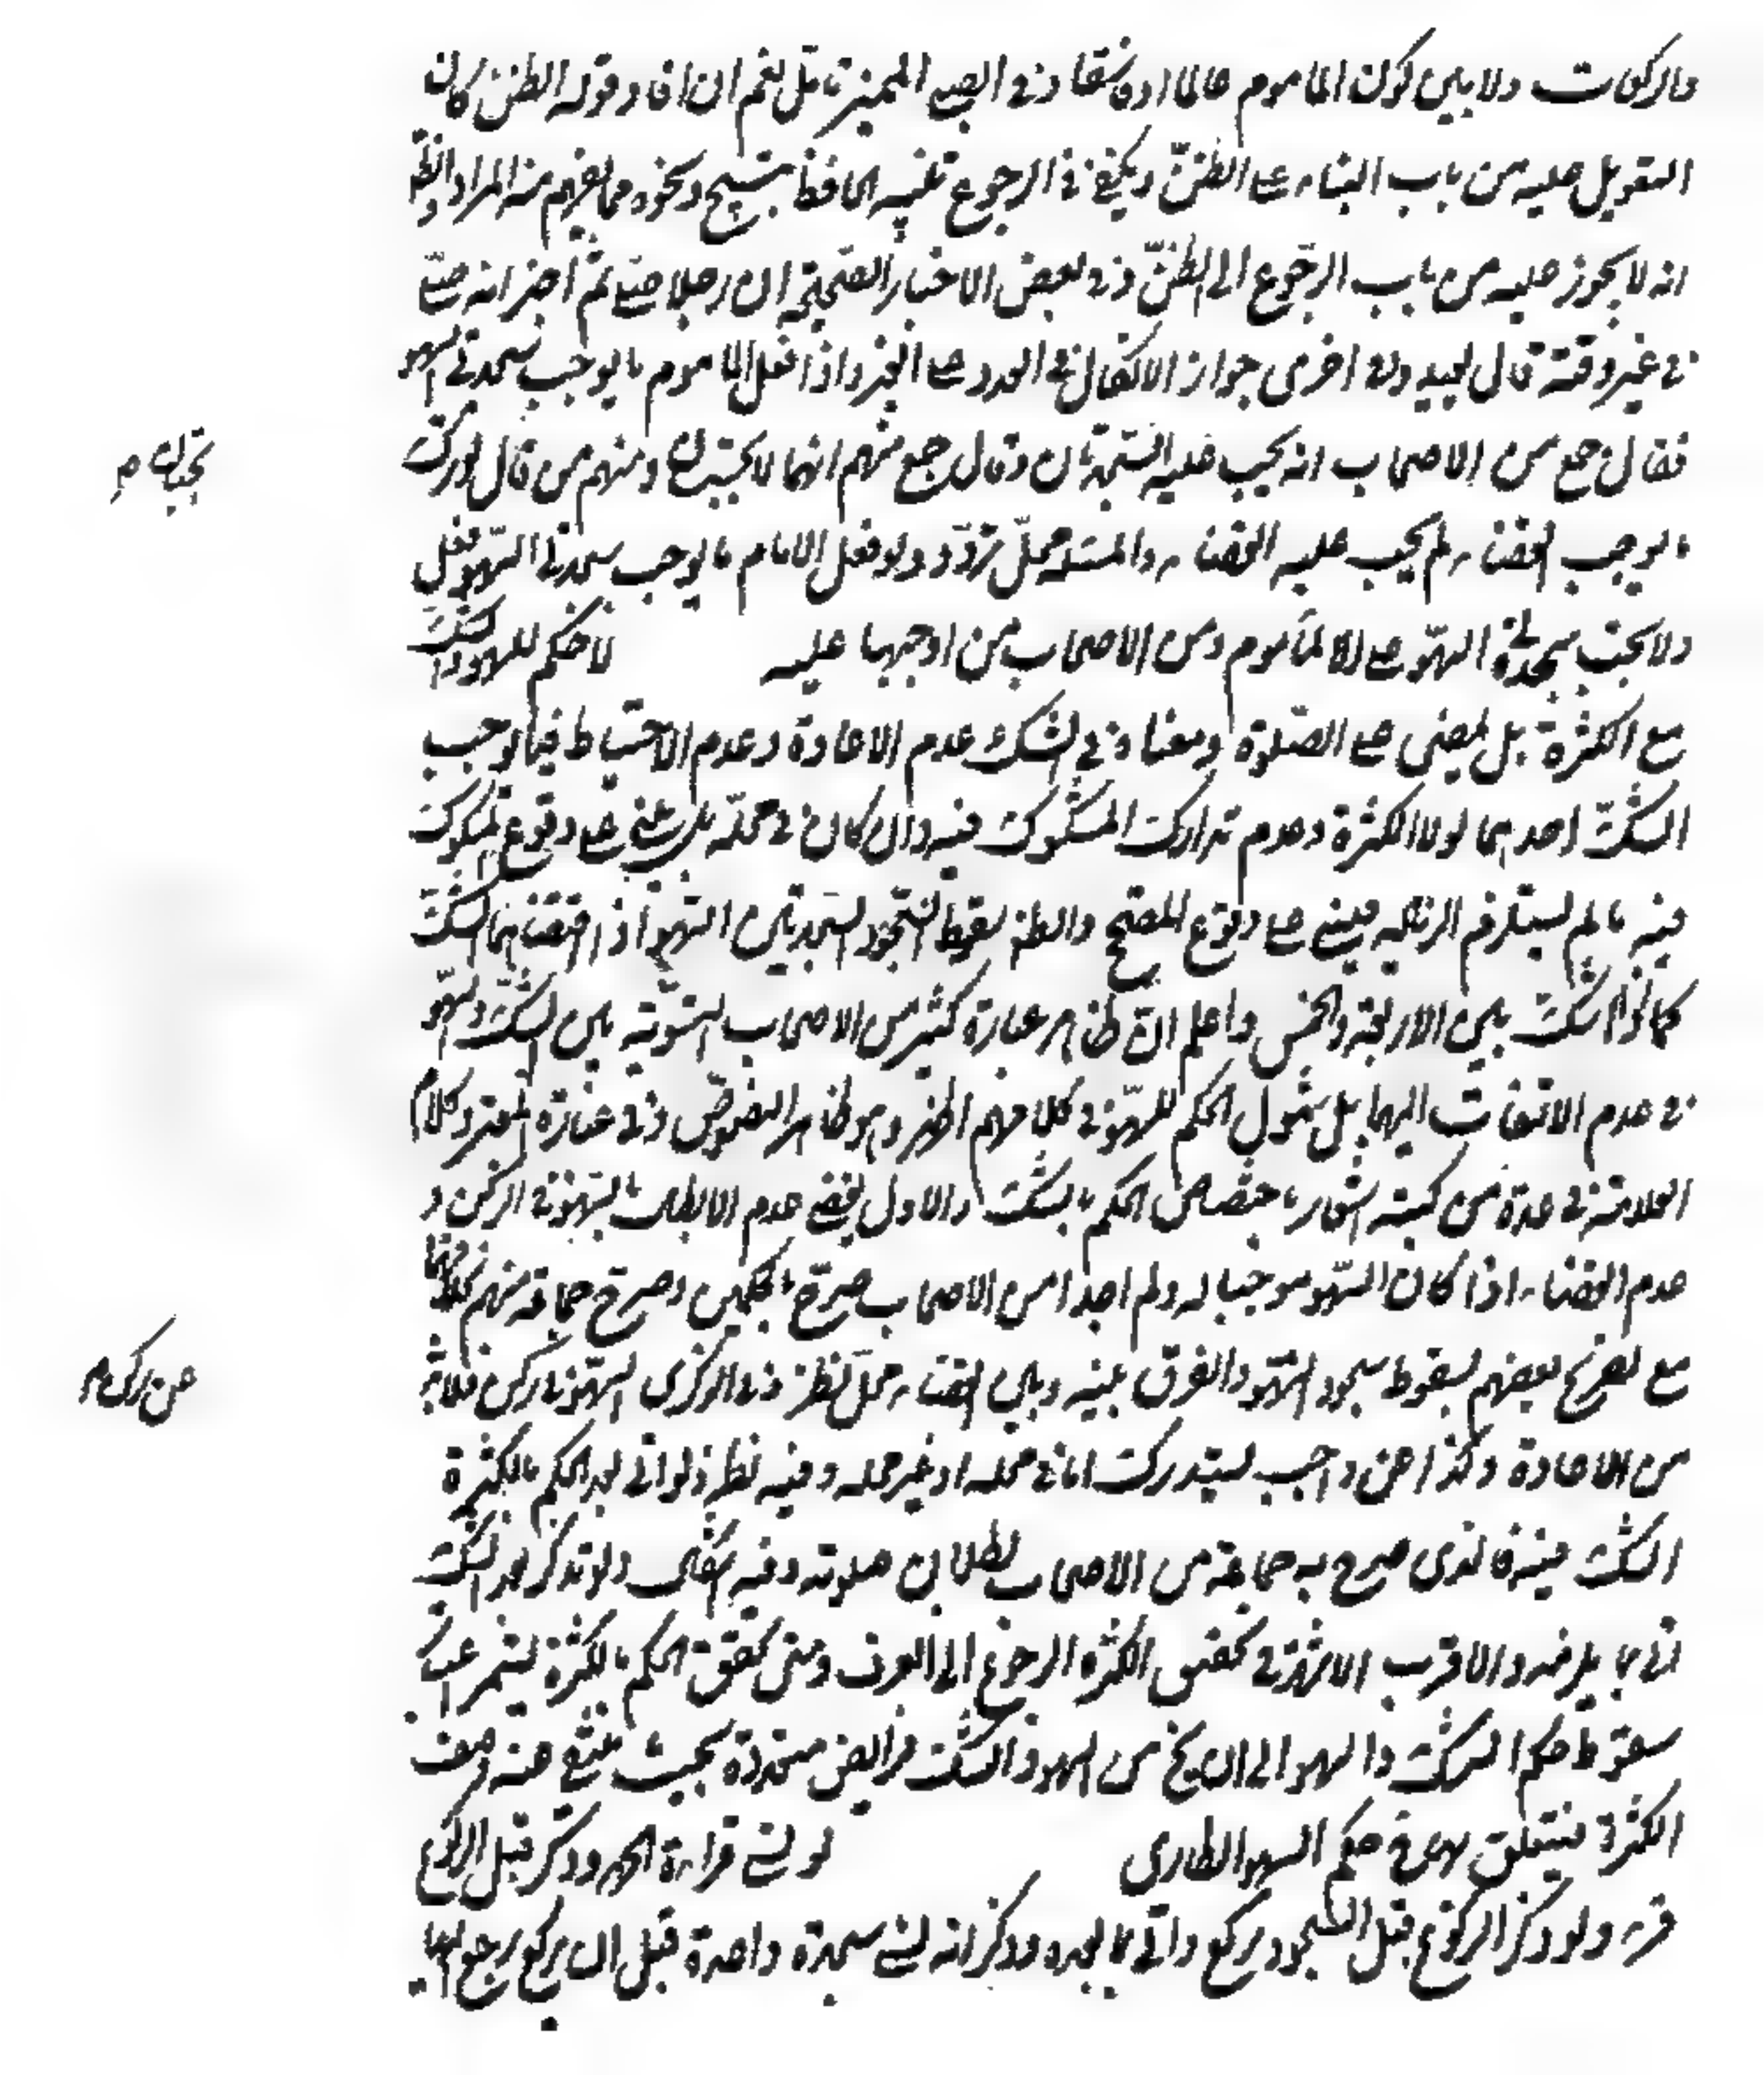 والركعات ولا بين كون الماموم عالما او فاسقا وفى الصبى المميز تامل نعم ان افاد قوله الظن كان
التعويل عليه من باب البناء على الظنّ ويكفى فى الرجوع تنبيه الحافظ بتسبيح ونحوه مما يفهم منه المراد والظ
انه لا يجوز عليه من باب الرجوع الى الظنّ وفى بعض الاخبار الصحيحة ان رجلا صلى ثم اخبر انه صلى
فى غير وقته قال يعيد وفى اخرى جواز الاتكال فى العدد على الغير واذا فعل الماموم ما يوجب سجدتى السهو
فقال جمع من الاصحاب انه يجب عليه السجدتان وقال جمع منهم انهما لا يجبان ومنهم من قال لو ترك
ما يوجب القضاء لم يجب عليه القضاء والمسئلة محلّ تردّد ولو فعل الامام ما يوجب سجدتى السهو فعل
ولا يجب سجدتى السهو على الماموم ومن الاصحاب من اوجبها عليه لا حكم للسهو والشك
مع الكثرة بل يمضى على الصلوة ومعناه فى الشك عدم الاعادة وعدم الاحتياط فيما يوجب
الشك احدهما لولا الكثرة وعدم تدارك المشكوك فيه وان كان فى محله بل يبنى على وقوع المشكوك
فيه ما لم يستلزم الزيادة فيبنى على وقوع المصحح والظ سقوط السجود لسجدتين السهو اذ اقتضاهما الشك
كما لو شك بين الاربعة والخمس واعلم ان ظاهر عبارة كثير من الاصحاب التسوية بين الشك والسهو
فى عدم الالتفات اليهما بل شمول الحكم للسهو فى كلامهم اظهر وهو ظاهر النصوص وفى عبارة المعتبر وكلام
العلامة فى عدة من كتبه اشعار باختصاص الحكم بالشك والاول يقتضى عدم الابطال بالسهو فى الركن و
عدم القضاء اذا كان السهو موجبا له ولم اجد احدا من الاصحاب صرّح بالحكمين وصرح جماعة منهم بخلافهما
مع تصريح بعضهم بسقوط سجود السهو والفرق بينه وبين القضاء محل نظر وفى الذكرى لو سهو عن ركن فلا بد
من الاعادة وكذا عن واجب يستدرك اما فى محله او غير محله وفيه نظر ولو اتى بعد الحكم بالكثرة
الشك فيه فالذى صرح به جماعة من الاصحاب بطلان صلوته وفيه اشكال ولو تذكر بعد الشك
اتى بما يلزمه والاقرب الاشهر فى تحقق الكثرة الرجوع الى العرف ومتى تحقق الحكم بالكثرة يستمر
سقوط حكم الشك والسهو الى ان يخ من السهو والشك فرايض متعددة بحيث ينتفى عنه وصف
الكثرة فيتعلق به حكم السهو الطارى لو نسى قراءة الحمد وذكر قبل الركوع
قرء ولو ذكر الركوع قبل السجود يركع واتى بما بعده وذكر انه نسى سجدة واحدة قبل ان يركع يرجع اليها
يجبان م
عن ركن م